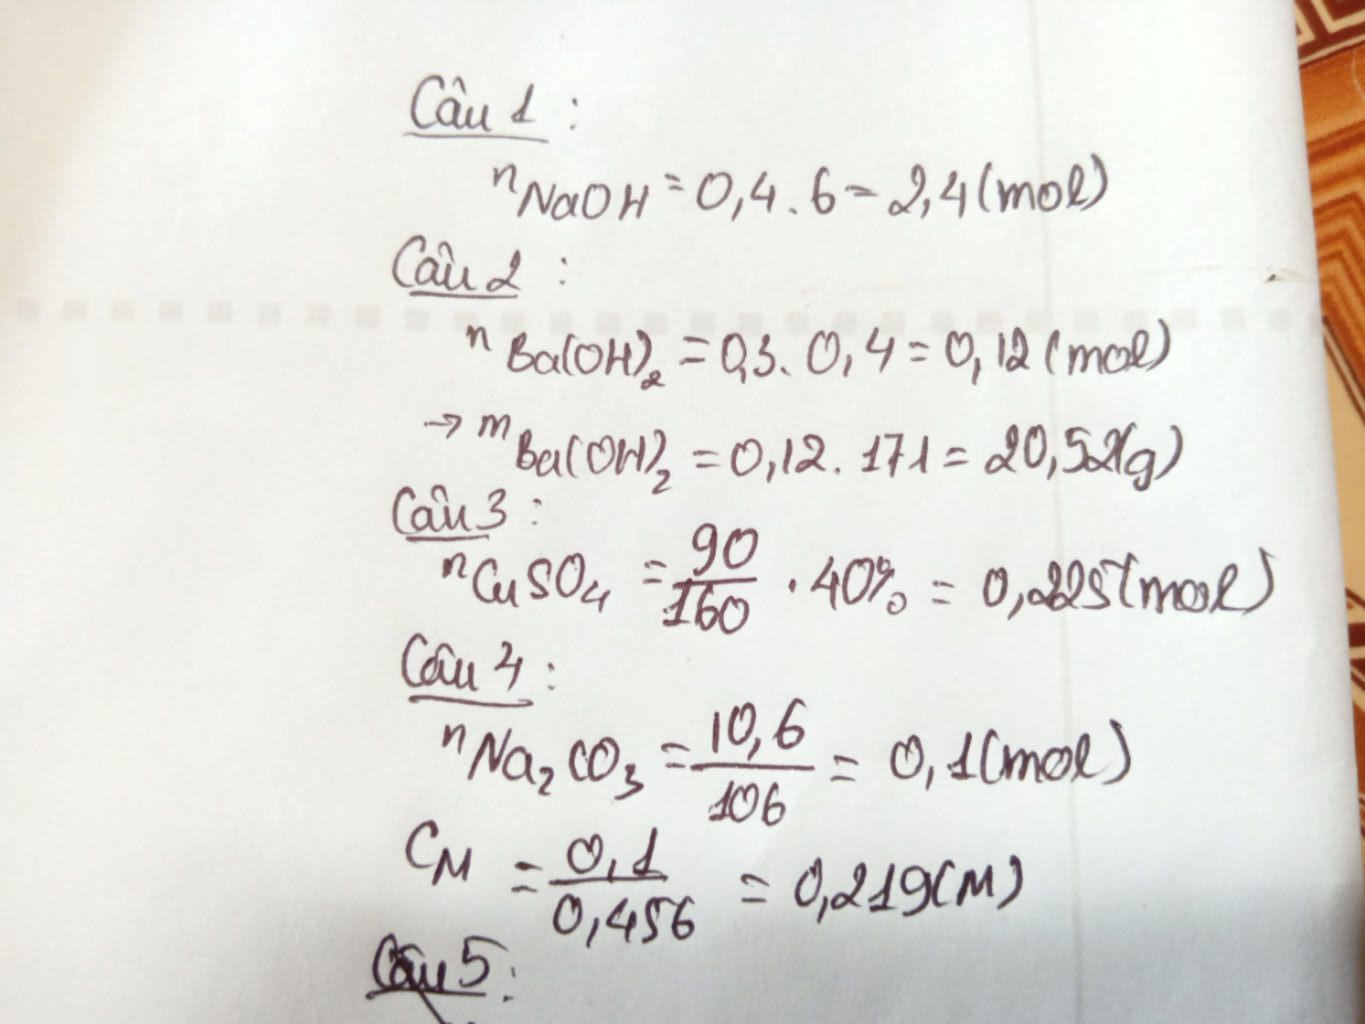 Câu 1 :
nNaOH = 0,4 . 6 = 2,4 (mol)
Câu 2 :
nBa(OH)₂ = 0,3 . 0,4 = 0,12 (mol)
→ mBa(OH)₂ = 0,12 . 171 = 20,52(g)
Câu 3 :
nCuSO₄ = 90/160 . 40% = 0,225 (mol)
Câu 4 :
nNa₂CO₃ = 10,6/106 = 0,1 (mol)
CM = 0,1/0,456 = 0,219 (M)
Câu 5 :